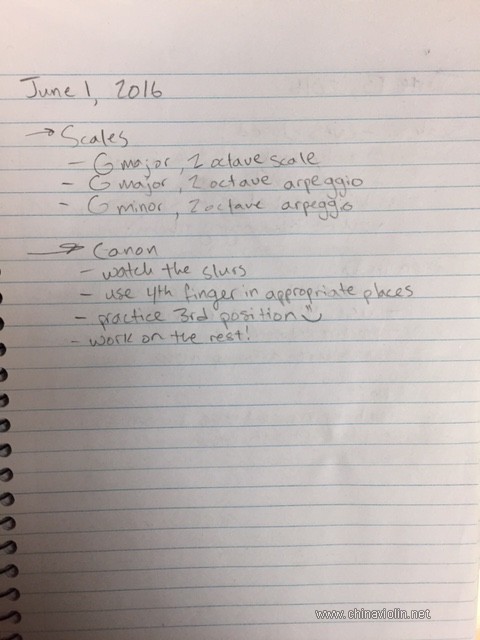 June 1, 2016
→ Scales
- G major, 2 octave scale
- G major, 2 octave arpeggio
- G minor, 2 octave arpeggio
→ Canon
- watch the slurs
- use 4th finger in appropriate places
- practice 3rd position
- work on the rest!
www.chinaviolin.net